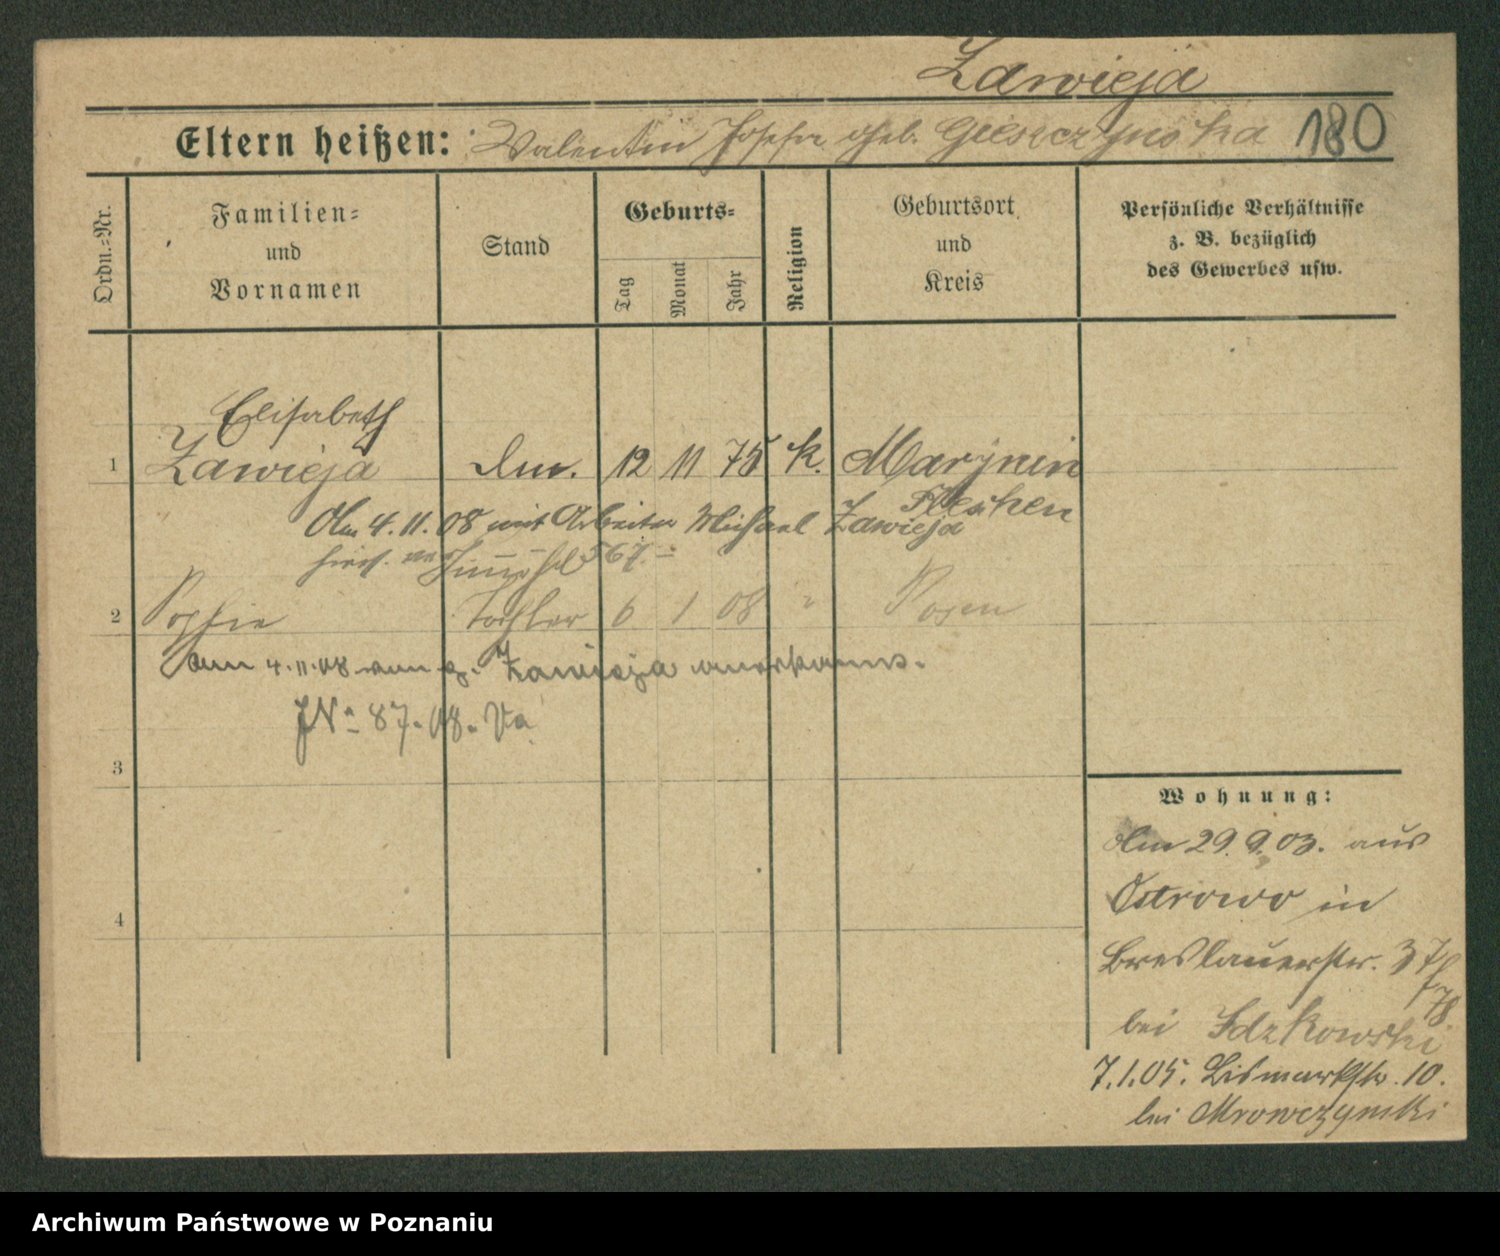 Zawieja
Eltern heißen: Valentin Josefa geb. Gieszczynska 180
Ordn.=Nr.
Familien=
und
Vornamen
Stand
Geburts=
Tag
Monat
Jahr
Religion
Geburtsort
und
Kreis
Persönliche Verhältnisse
z. B. bezüglich
des Gewerbes usw.
Elisabeth
1 Zawieja 12 11 75 k. Marynin
Pleschen
Am 4.11.08 mit Arbeiter Michael Zawieja
hier 567
2 Sophie Tochter 6 1 08 " Posen
am 4.11.08 Zawieja anerkannt.
JNo 87.08. Va
3
4
Wohnung:
Am 29.9.03. aus
Ostrowo in
Breslauerstr. 37/
38
bei Idzkowski
7.1.05. Bismarkstr. 10.
bei Mrowczynski
Archiwum Państwowe w Poznaniu